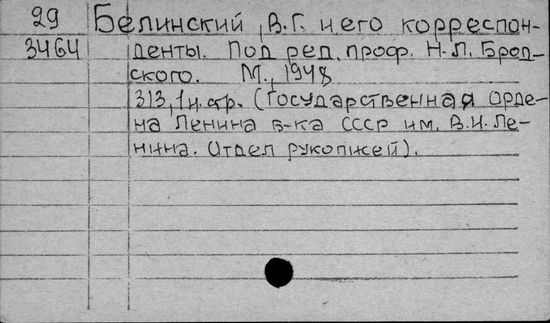 29 Белинский, В.Г. и его корреспон-
3464 денты. Под ред. проф. Н.Л. Брод-
ского. М., 1948
313, 1 н. стр. (Государственная орде-
на Ленина б-ка СССР им. В.И. Ле-
нина. Отдел рукописей).